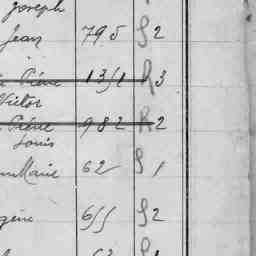 Joseph
Jean 795 S 2
Pierre 1351 R 3
Victor
Pierre 982 R 2
Louis
Marie 62 S 1
gène 655 S 2